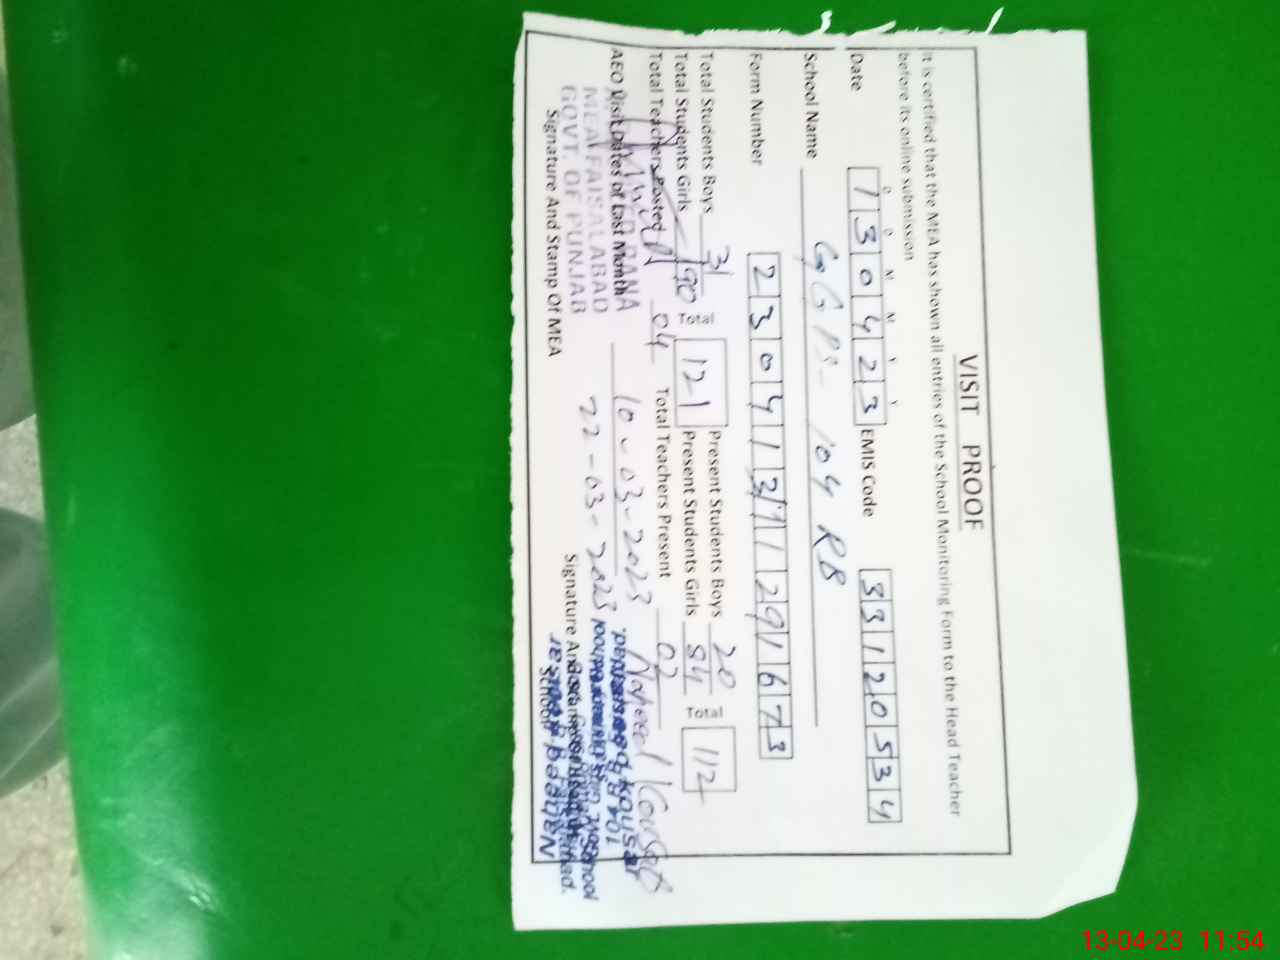 VISIT PROOF
It is certified that the MEA has shown all entries of the School Monitoring Form to the Head Teacher
before its online submission
D D M M Y Y
Date 130423 EMIS Code 33120534
School Name GGPS- 104 RB
Form Number 23041311291673
Total Students Boys 31 Total 121 Present Students Boys 20 Total 112
Total Students Girls 90 Present Students Girls 94
Total Teachers Posted 04 Total Teachers Present 02
AEO Visit Dates of Last Month 10-03-2023
22-03-2023
RANA
MEA FAISALABAD
GOVT. OF PUNJAB
Signature And Stamp Of MEA
Kousar
Signature And
School
13-04-23 11:54